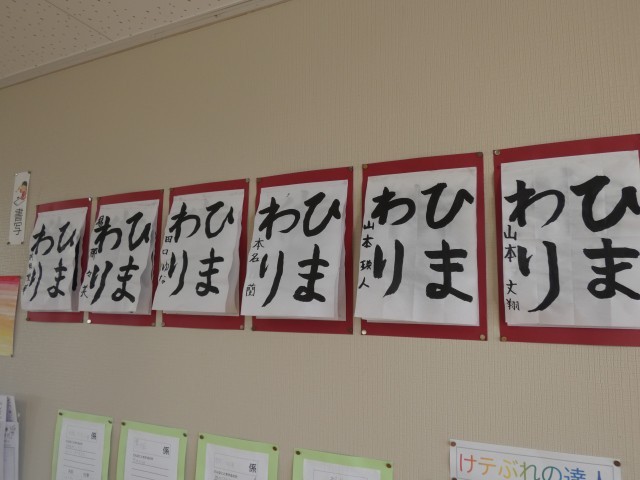 書写
ひま
わり
ひま
わり
ひま
わり
田口ゆな
ひま
わり
本名 蘭
ひま
わり
山本 瑛人
ひま
わり
山本 文翔
係
係
係
係
けテぶれの達人